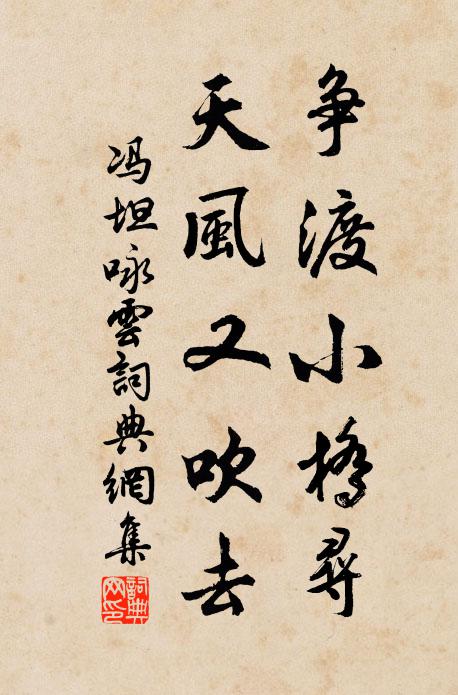 争渡小橋尋
天風又吹去
冯坦咏雲詞典網集
詞典網印